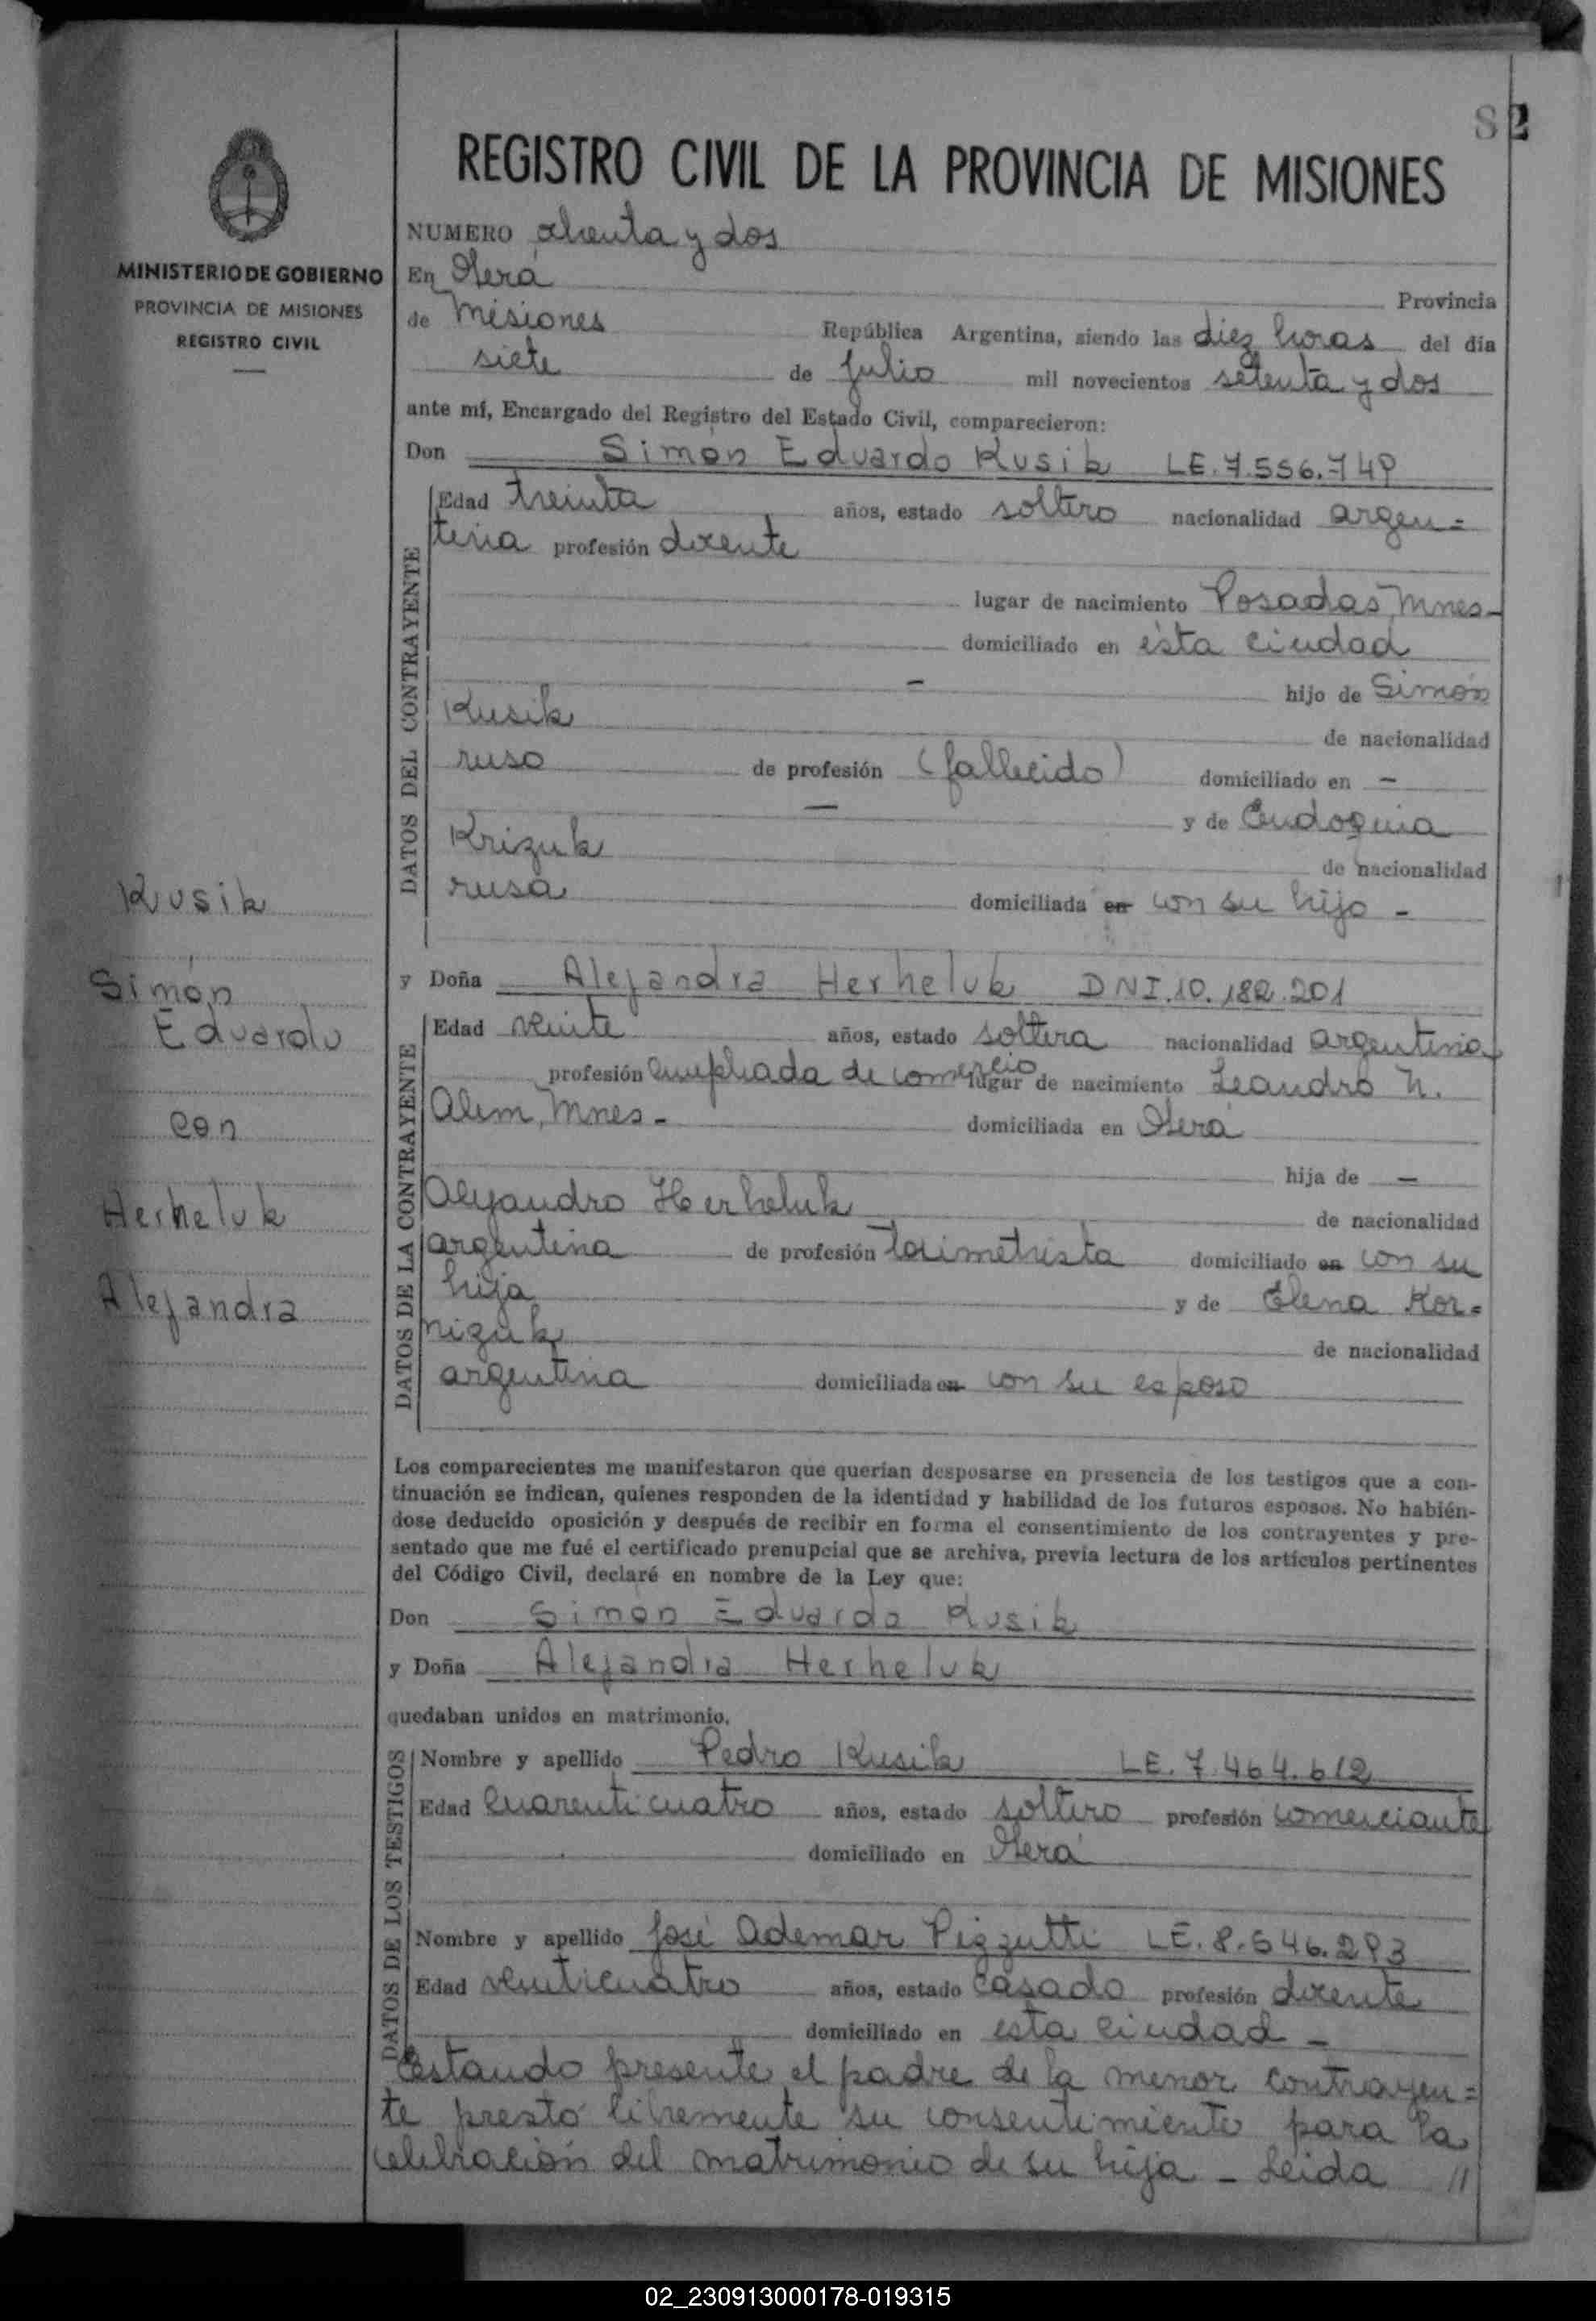 82
REGISTRO CIVIL DE LA PROVINCIA DE MISIONES
MINISTERIO DE GOBIERNO
PROVINCIA DE MISIONES
REGISTRO CIVIL
NUMERO ochenta y dos
En Oberá Provincia
de Misiones República Argentina, siendo las diez horas del día
siete de julio mil novecientos setenta y dos
ante mí, Encargado del Registro del Estado Civil, comparecieron:
Don Simón Eduardo Kusik LE. 7.556.749
DATOS DEL CONTRAYENTE
Edad treinta años, estado soltero nacionalidad argen=
tina profesión docente
lugar de nacimiento Posadas, Mnes-
domiciliado en ésta ciudad
- hijo de Simón
Kusik de nacionalidad
ruso de profesión (fallecido) domiciliado en -
- y de Eudoquia
Krizuk de nacionalidad
rusa domiciliada en con su hijo -
y Doña Alejandra Herheluk DNI. 10.182.201
DATOS DE LA CONTRAYENTE
Edad veinte años, estado soltera nacionalidad argentina
profesión empleada de comercio lugar de nacimiento Leandro N.
Alem, Mnes- domiciliada en Oberá
hija de -
Alejandro Herheluk de nacionalidad
argentina de profesión taximetrista domiciliado en con su
hija y de Elena Kor=
nizuk de nacionalidad
argentina domiciliada en con su esposo
Los comparecientes me manifestaron que querían desposarse en presencia de los testigos que a con-
tinuación se indican, quienes responden de la identidad y habilidad de los futuros esposos. No habién-
dose deducido oposición y después de recibir en forma el consentimiento de los contrayentes y pre-
sentado que me fué el certificado prenupcial que se archiva, previa lectura de los artículos pertinentes
del Código Civil, declaré en nombre de la Ley que:
Don Simón Eduardo Kusik
y Doña Alejandra Herheluk
quedaban unidos en matrimonio.
DATOS DE LOS TESTIGOS
Nombre y apellido Pedro Kusik LE. 7.464.612
Edad cuarenticuatro años, estado soltero profesión comerciante
domiciliado en Oberá
Nombre y apellido José Ademar Pizzutti LE. 8.546.293
Edad veinticuatro años, estado casado profesión docente
domiciliado en esta ciudad -
Estando presente el padre de la menor contrayen=
te prestó libremente su consentimiento para la
celebración del matrimonio de su hija - Leida //
Kusik
Simón
Eduardo
con
Herheluk
Alejandra
02_230913000178-019315